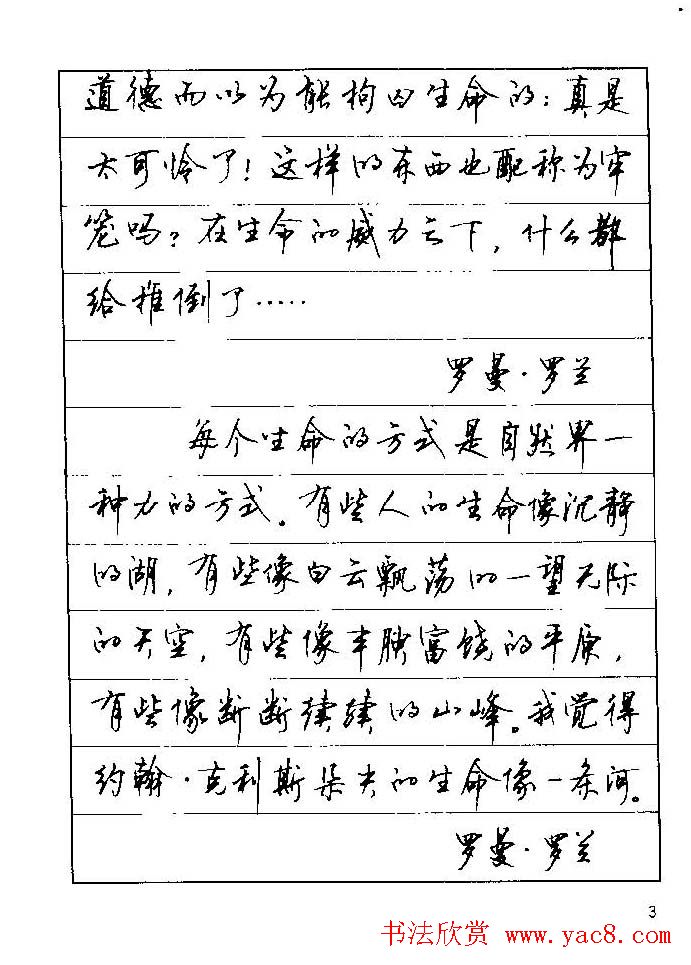 道德而以为能拘囚生命的：真是
太可怜了！这样的东西也配称为牢
笼吗？在生命的威力之下，什么都
给推倒了……
罗曼·罗兰
每个生命的方式是自然界一
种力的方式。有些人的生命像沉静
的湖，有些像白云飘荡的一望无际
的天空，有些像丰腴富饶的平原，
有些像断断续续的山峰。我觉得
约翰·克利斯朵夫的生命像一条河。
罗曼·罗兰
3
书法欣赏 www.yac8.com